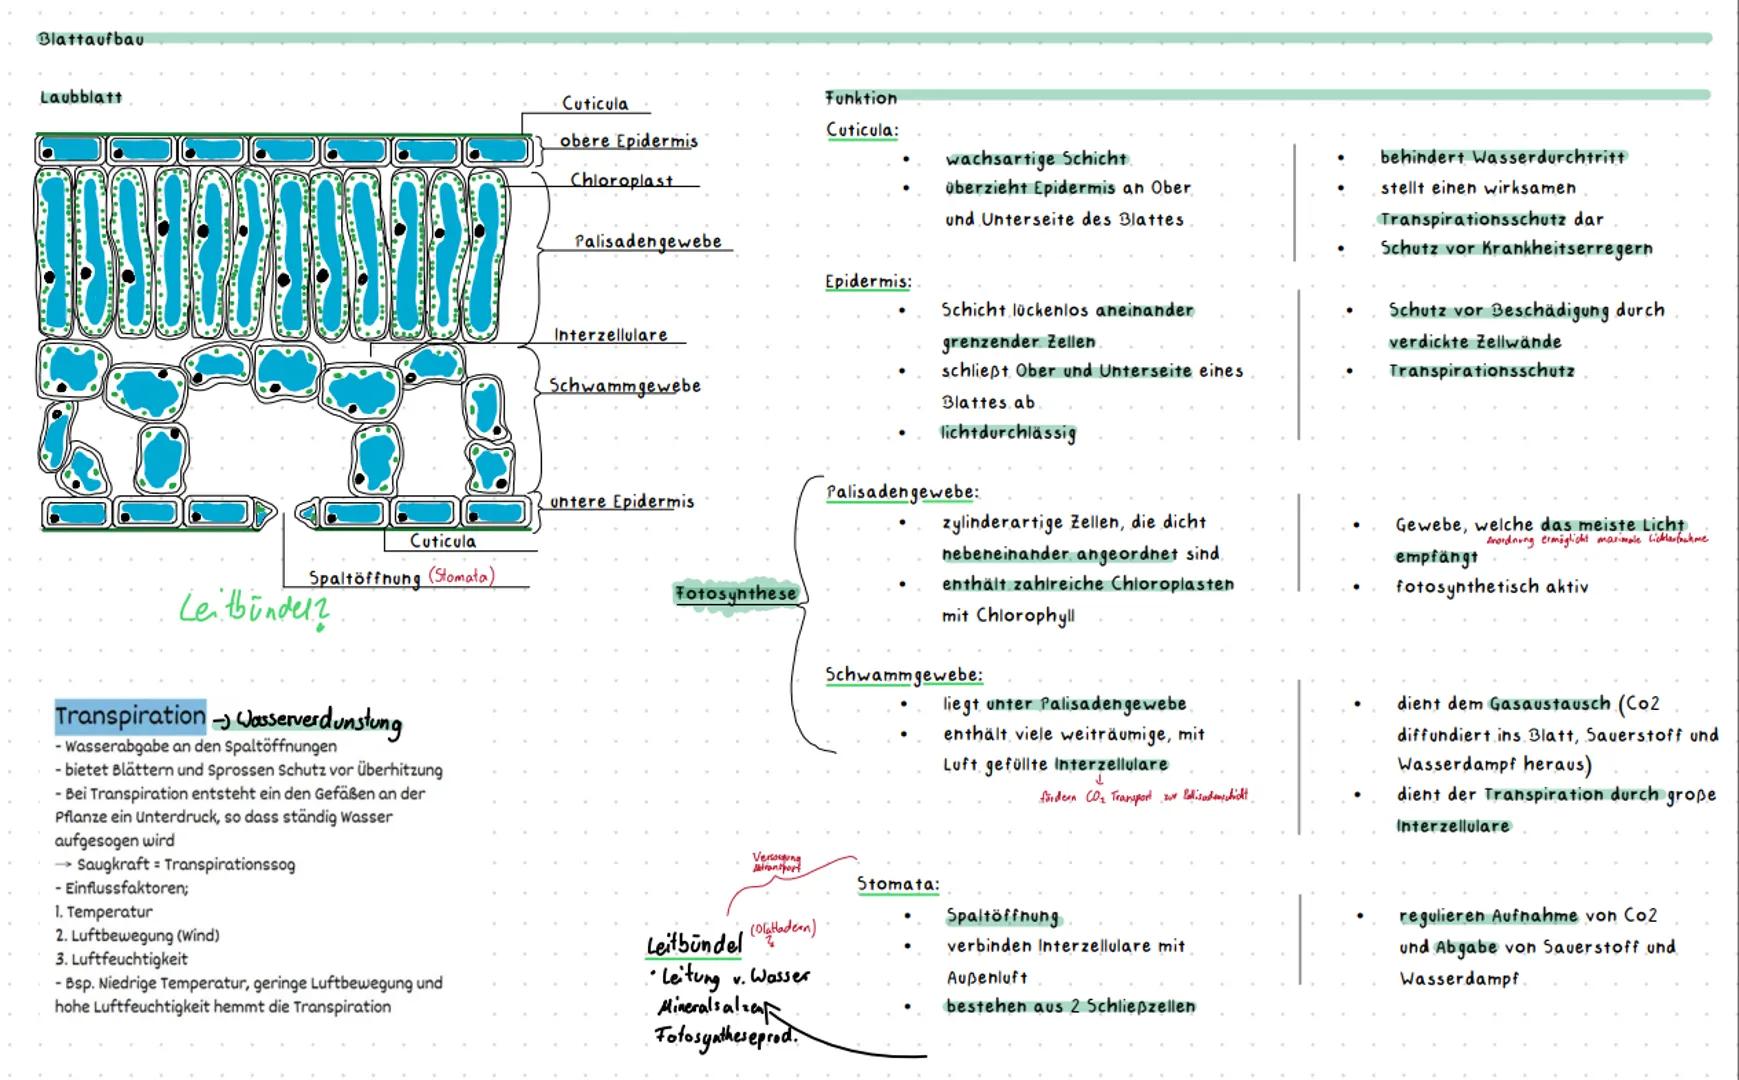 Blattaufbau
Laubblatt
Cuticula
obere Epidermis
Chloroplast
Palisadengewebe
Interzellulare
Schwammgewebe
untere Epidermis
Cuticula
Spaltöffnung (Stomata)
Leitbündel?
Transpiration → Wasserverdunstung
- Wasserabgabe an den Spaltöffnungen
- bietet Blättern und Sprossen Schutz vor Überhitzung
- Bei Transpiration entsteht ein den Gefäßen an der
Pflanze ein Unterdruck, so dass ständig Wasser
aufgesogen wird
→ Saugkraft = Transpirationssog
- Einflussfaktoren;
1. Temperatur
2. Luftbewegung (Wind)
3. Luftfeuchtigkeit
- Bsp. Niedrige Temperatur, geringe Luftbewegung und
hohe Luftfeuchtigkeit hemmt die Transpiration
Funktion
Cuticula:
• wachsartige Schicht
• überzieht Epidermis an Ober
und Unterseite des Blattes
• behindert Wasserdurchtritt
• stellt einen wirksamen
Transpirationsschutz dar
• Schutz vor Krankheitserregern
Epidermis:
• Schicht lückenlos aneinander
grenzender Zellen
• schließt Ober und Unterseite eines
Blattes ab
• lichtdurchlässig
• Schutz vor Beschädigung durch
verdickte Zellwände
• Transpirationsschutz
Fotosynthese
Palisadengewebe:
• zylinderartige Zellen, die dicht
nebeneinander angeordnet sind
• enthält zahlreiche Chloroplasten
mit Chlorophyll
• Gewebe, welche das meiste Licht
Anordnung ermöglicht maximale Lichtaufnahme
empfängt
• fotosynthetisch aktiv
Schwammgewebe:
• liegt unter Palisadengewebe
• enthält viele weiträumige, mit
Luft gefüllte Interzellulare
↓
fördern CO₂ Transport zur Palisadenschicht
• dient dem Gasaustausch (Co2
diffundiert ins Blatt, Sauerstoff und
Wasserdampf heraus)
• dient der Transpiration durch große
Interzellulare
Versorgung
Abtransport
Stomata:
• Spaltöffnung
• verbinden Interzellulare mit
Außenluft
• bestehen aus 2 Schließzellen
• regulieren Aufnahme von Co2
und Abgabe von Sauerstoff und
Wasserdampf
(Blattadern)
Leitbündel
• Leitung v. Wasser
Mineralsalzen
Fotosyntheseprod.